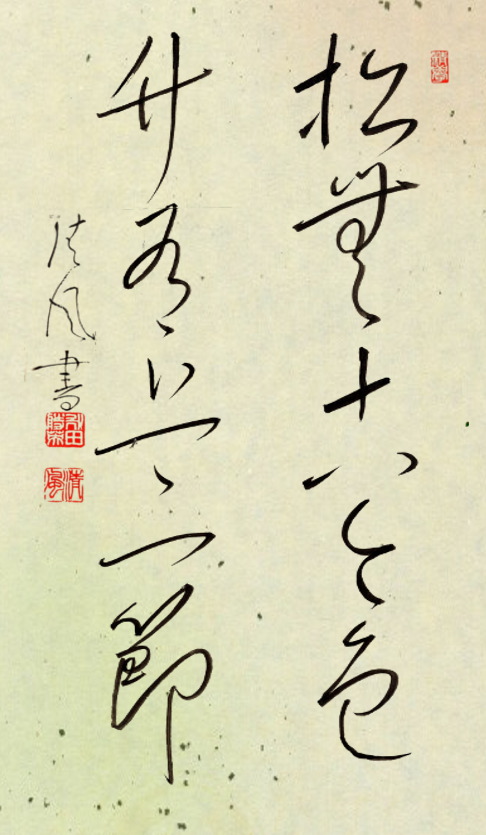 松無古今色
竹有上下節
清風書
清風